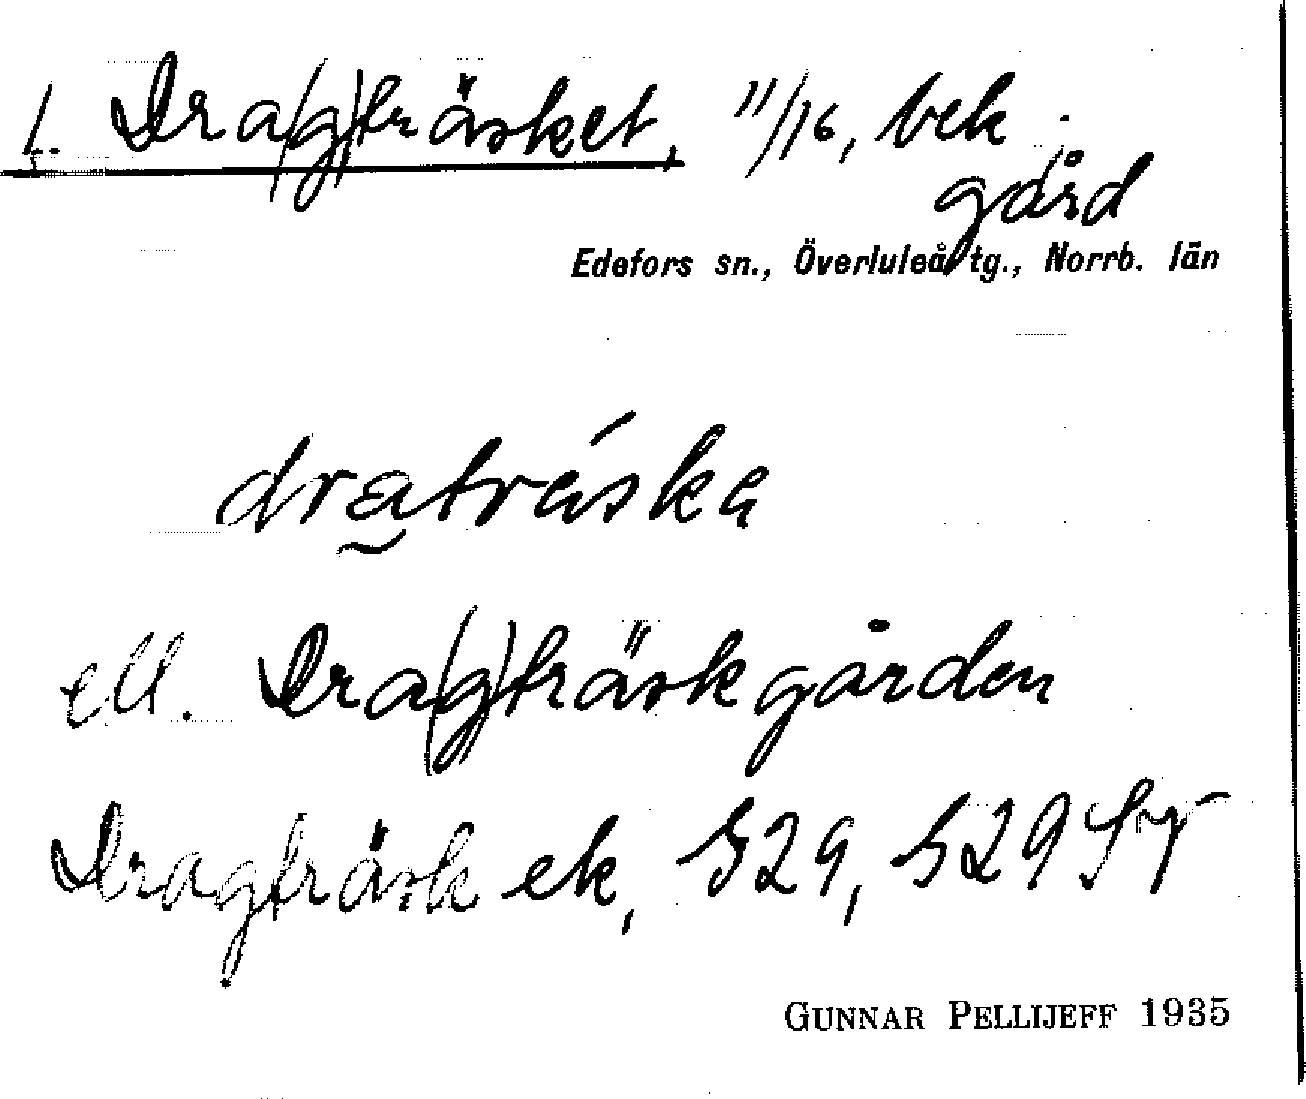 1. Dra(g)träsket, 11/16, bek.
gård
Edefors sn., Överluleå tg., Norrb. län
dratráska
ell. Dra(g)träskgården
Dragträsk ek, S29, S29 ST
GUNNAR PELLIJEFF 1935